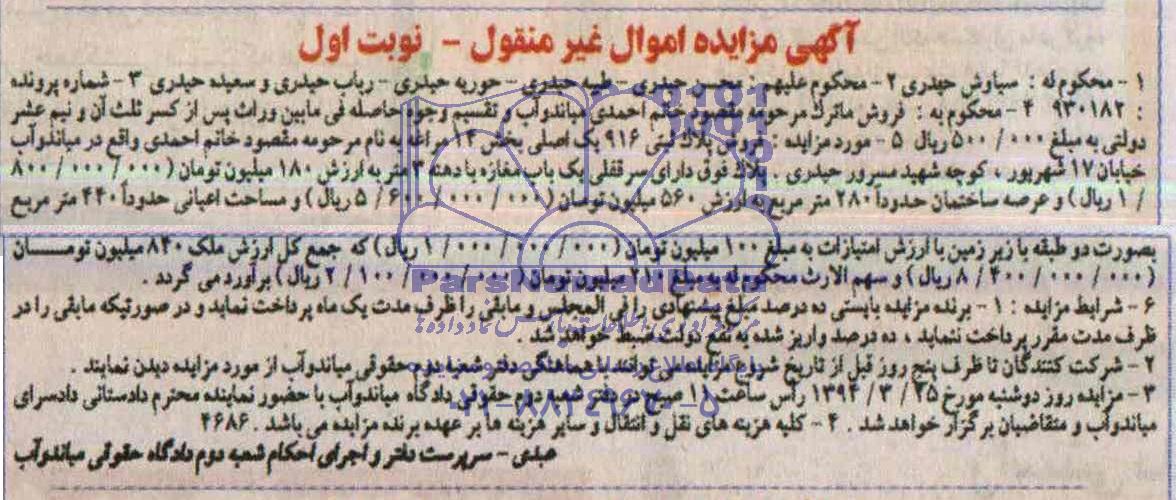 آگهی مزایده اموال غیر منقول - نوبت اول
۱ - محکوم له : سیاوش حیدری ۲ - محکوم علیهم : محسن حیدری - طیبه حیدری - حوریه حیدری - رباب حیدری و سعیده حیدری ۳ - شماره پرونده
: ۹۳۰۱۸۲ ۴ - محکوم به : فروش ماترک مرحومه مقصود خانم احمدی میاندوآب و تقسیم وجوه حاصله فی مابین وراث پس از کسر ثلث آن و نیم عشر
دولتی به مبلغ ۵۰۰/۰۰۰ ریال ۵ - مورد مزایده : فروش پلاک ثبتی ۹۱۶ یک اصلی بخش ۱۴ مراغه به نام مرحومه مقصود خانم احمدی واقع در میاندوآب
خیابان ۱۷ شهریور ، کوچه شهید مسرور حیدری . پلاک فوق دارای سرقفلی یک باب مغازه با دهنه ۳ متر به ارزش ۱۸۰ میلیون تومان (۸۰۰/۰۰۰/۰۰۰
/۱ ریال) و عرصه ساختمان حدوداً ۲۸۰ متر مربع به ارزش ۵۶۰ میلیون تومان (۵/۶۰۰/۰۰۰/۰۰۰ ریال) و مساحت اعیانی حدوداً ۴۴۰ متر مربع
بصورت دو طبقه با زیر زمین با ارزش امتیازات به مبلغ ۱۰۰ میلیون تومان (۱/۰۰۰/۰۰۰/۰۰۰ ریال) که جمع کل ارزش ملک ۸۴۰ میلیون تومـــان
(۸/۴۰۰/۰۰۰/۰۰۰ ریال) و سهم الارث محکوم له به مبلغ ۲۱۰ میلیون تومان (۲/۱۰۰/۰۰۰/۰۰۰ ریال) برآورد می گردد .
۶ - شرایط مزایده : ۱ - برنده مزایده بایستی ده درصد مبلغ پیشنهادی را فی المجلس و مابقی را ظرف مدت یک ماه پرداخت نماید و در صورتیکه مابقی را در
ظرف مدت مقرر پرداخت ننماید ، ده درصد واریز شده به نفع دولت ضبط خواهد شد .
۲ - شرکت کنندگان تا ظرف پنج روز قبل از تاریخ شروع مزایده می توانند با هماهنگی دفتر شعبه دوم حقوقی میاندوآب از مورد مزایده دیدن نمایند .
۳ - مزایده روز دوشنبه مورخ ۱۳۹۴/۳/۲۵ رأس ساعت ۱۱ صبح در دفتر شعبه دوم حقوقی دادگاه میاندوآب با حضور نماینده محترم دادستانی دادسرای
میاندوآب و متقاضیان برگزار خواهد شد . ۴ - کلیه هزینه های نقل و انتقال و سایر هزینه ها بر عهده برنده مزایده می باشد . ۴۶۸۶
عبدی - سرپرست دفتر و اجرای احکام شعبه دوم دادگاه حقوقی میاندوآب
ParsNamadData
۰۲۱-۸۸۳۴۹۶۷۰-۵